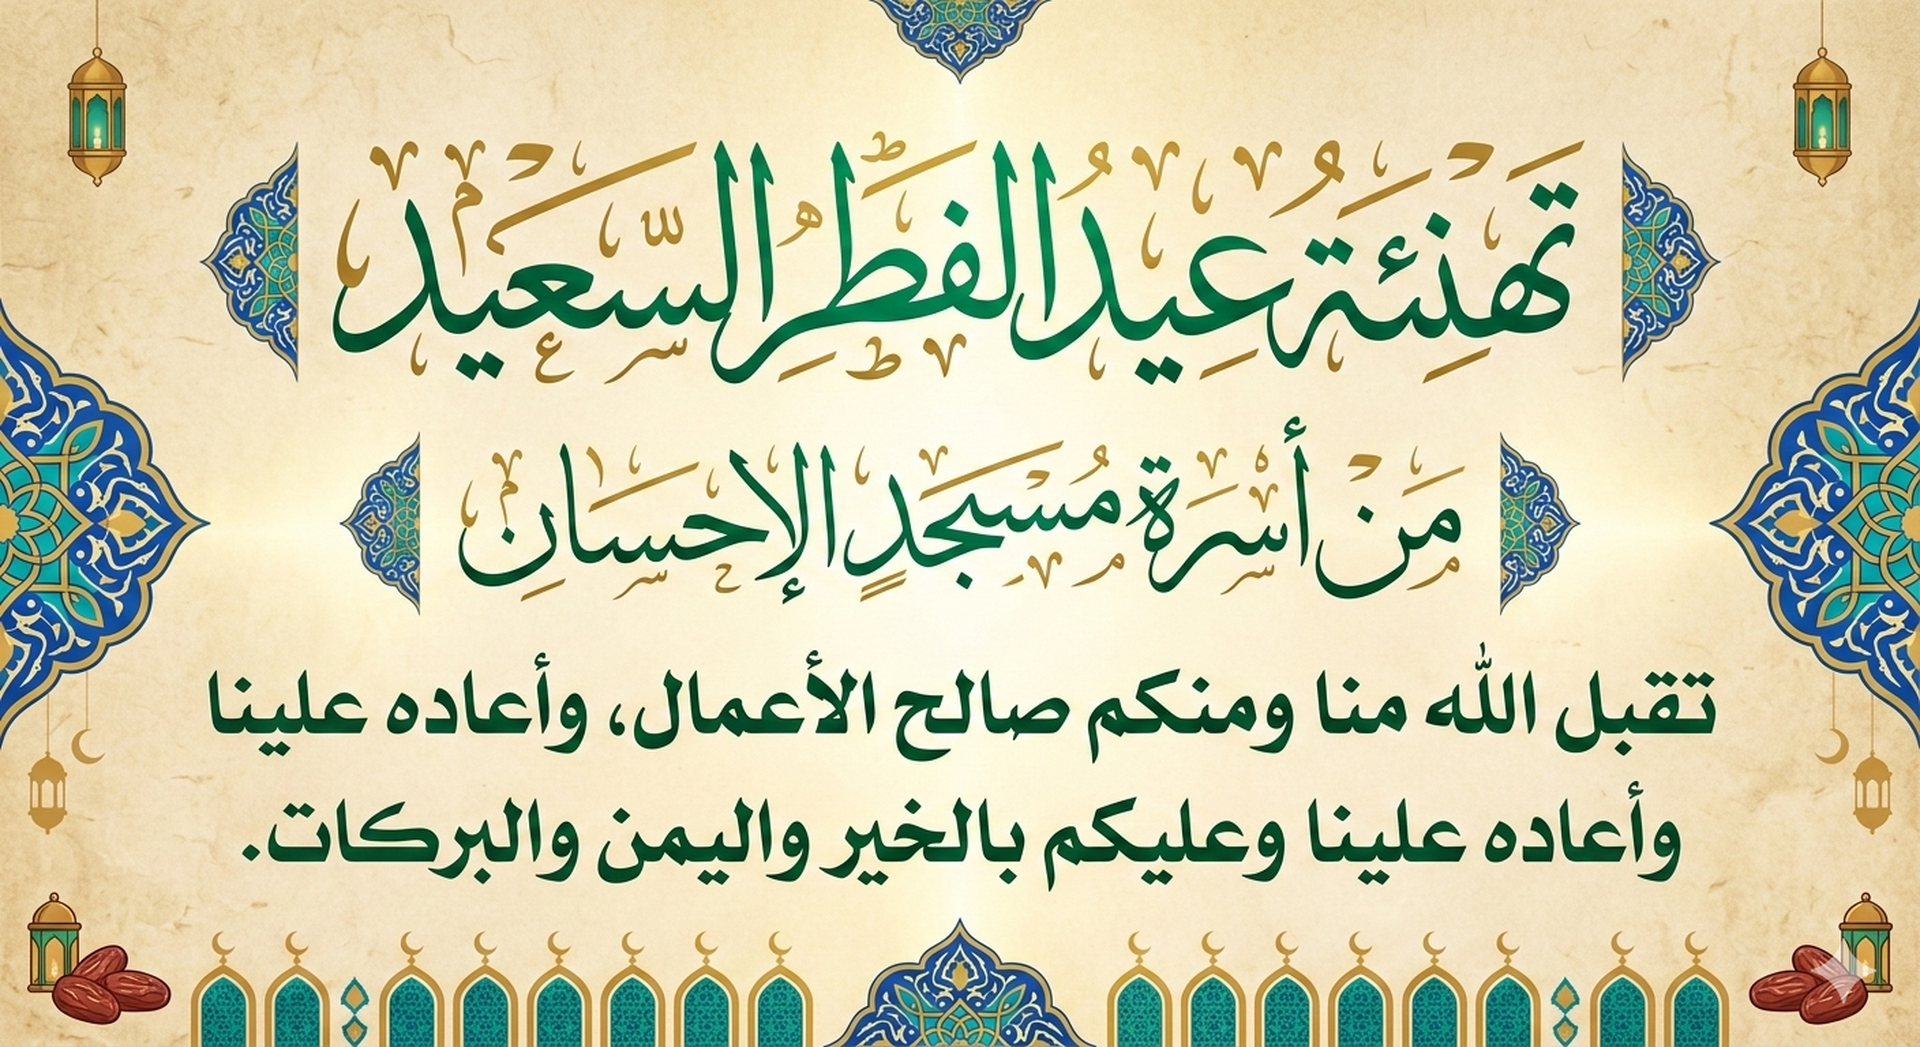 تهنئة عيد الفطر السعيد
من أسرة مسجد الإحسان
تقبل الله منا ومنكم صالح الأعمال، وأعاده علينا
وأعاده علينا وعليكم بالخير واليمن والبركات.